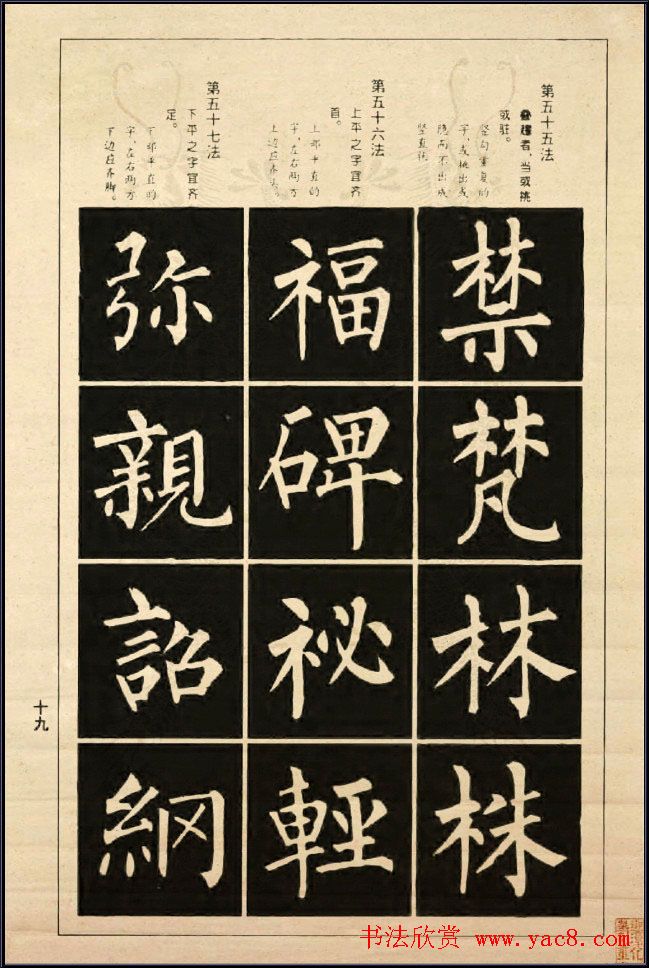 第五十五法
叠趯者，当或挑
或驻。
竖勾重复的
字，或挑出或
隐而不出成
第五十六法
上平之字宜齐
首。
上部平直的
字，左右两方
上边应齐头。
第五十七法
下平之字宜齐
足。
下部平直的
字，左右两方
下边应齐脚。
禁梵林株
福碑祕輕
弥親詔綱
十九
书法欣赏 www.yac8.com